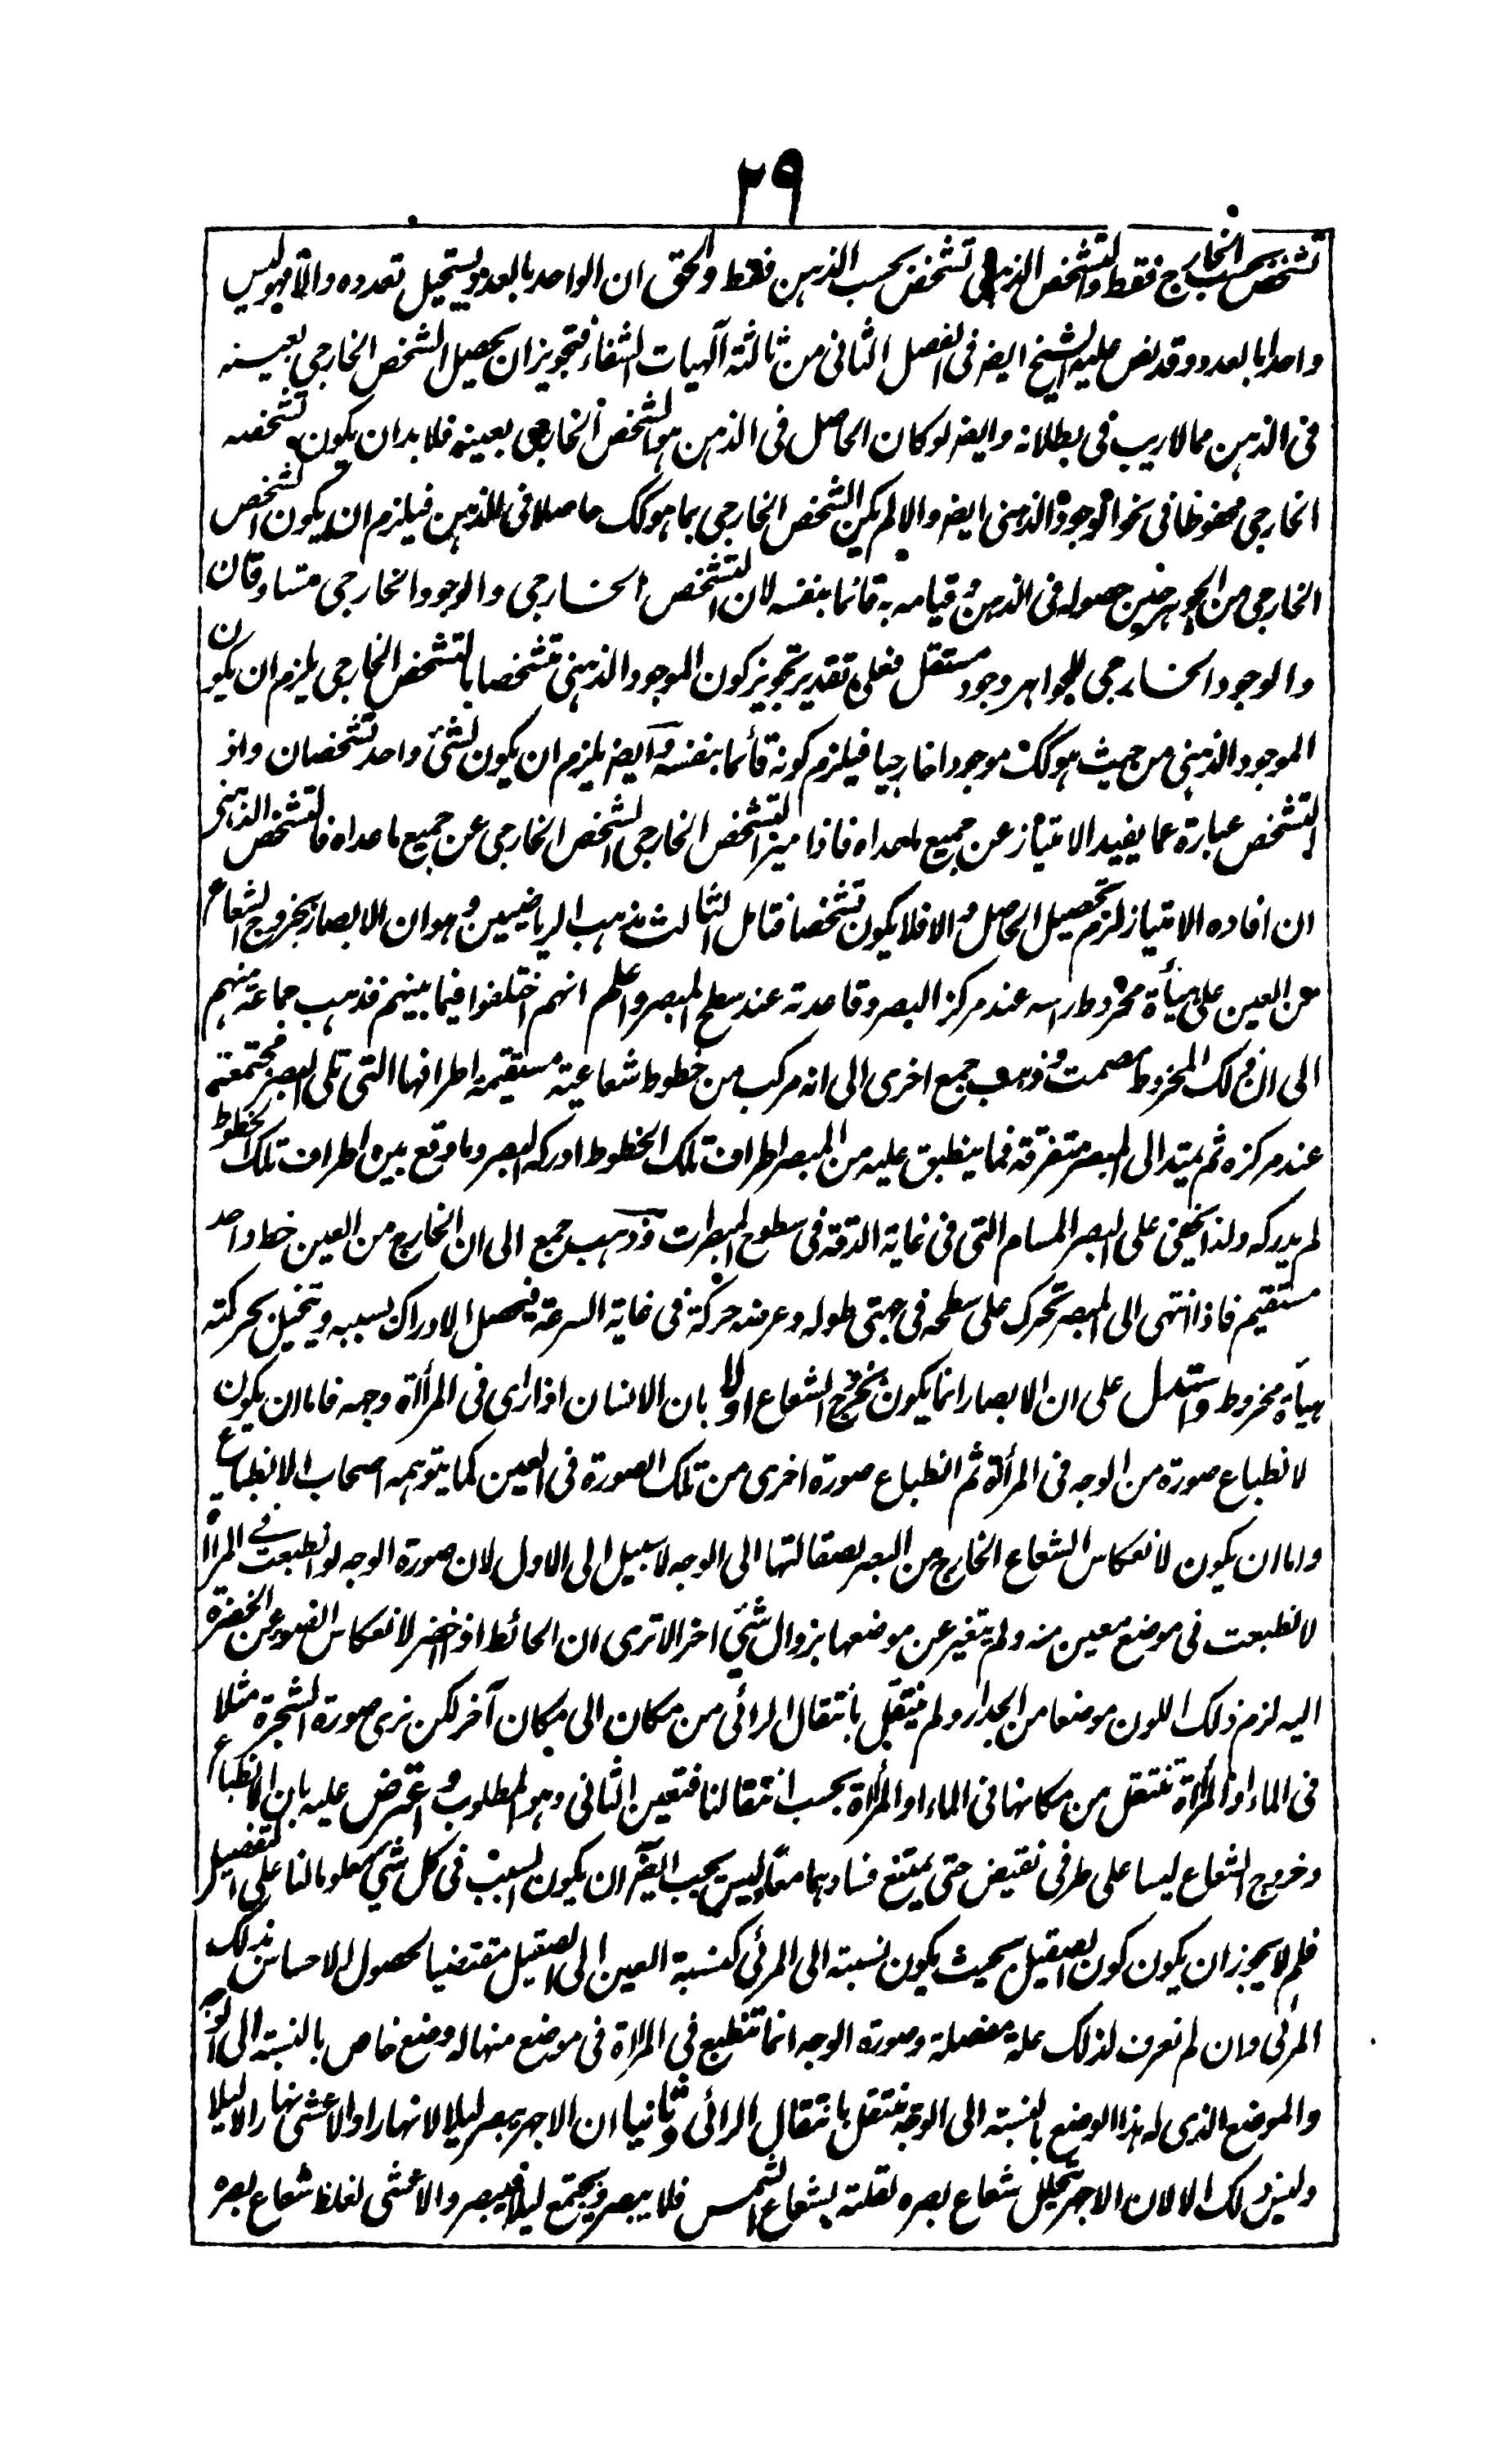 ٢٩
تشخص بحسب الخارج فقط والتشخص الذهنى تشخص بحسب الذهن فقط والحق ان الواحد بالعدد يستحيل تعدده والا فهو ليس
واحدا بالعدد وقد نص عليه الشيخ ايضه فى الفصل الثانى من ثالثة آلهيات الشفاء فتجويز ان يحصل الشخص الخارجى بعينه
فى الذهن مما لا ريب فى بطلانه وايضه لو كان الحاصل فى الذهن هو الشخص الخارجى بعينه فلا بد ان يكون تشخصه
الخارجى محفوظا فى نحو الوجود الذهنى ايضه والا لم يكن الشخص الخارجى بما هو كك حاصلا فى الذهن فيلزم ان يكون الشخص
الخارجى من الجوهر حين حصوله فى الذهن وقيامه به قائما بنفسه لان التشخص الخارجى والوجود الخارجى متساوقان
والوجود الخارجى للجواهر وجود مستقل فعلى تقدير تجويز كون الموجود الذهنى متشخصا بالتشخص الخارجى يلزم ان يكون
الموجود الذهنى من حيث هو كك موجودا خارجيا فيلزم كونه قائما بنفسه وايضه يلزم ان يكون لشئ واحد تشخصان واذ
التشخص عبارة عما يفيد الامتياز عن جميع ماعداه فاذا ميز التشخص الخارجى الشخص الخارجى عن جميع ماعداه فالتشخص الذهنى
ان افاده الامتياز لزم تحصيل الحاصل والا فلا يكون تشخصا فتامل الثالث مذهب الرياضيين وهو ان الابصار بخروج الشعاع
من العين على هيأة مخروط راسه عند مركز البصر وقاعدته عند سطح المبصر واعلم انهم اختلفوا فيما بينهم فذهب جماعة منهم
الى ان ذلك المخروط مصمت وذهب جمع اخرى الى انه مركب من خطوط شعاعية مستقيمة اطرافها التى تلى البصر مجتمعة
عند مركزه ثم يمتد الى المبصر متفرقة فما ينطبق عليه من المبصر اطراف تلك الخطوط ادركه البصر وما وقع بين اطراف تلك الخطوط
لم يدركه ولذا يخفى على البصر المسام التى فى غاية الدقة فى سطوح المبصرات وذهب جمع الى ان الخارج من العين خط واحد
مستقيم فاذا انتهى الى المبصر تحرك على سطحه فى جهتى طوله وعرضه حركة فى غاية السرعة فيحصل الادراك بسببه ويتخيل بحركته
هيأة مخروط واستدل على ان الابصار انما يكون بخروج الشعاع اولا بان الانسان اذا راى فى المرأاة وجهه فاما ان يكون
لانطباع صورة من الوجه فى المرأة ثم انطباع صورة اخرى من تلك الصورة فى العين كما يتوهمه اصحاب الانطباع
واما ان يكون لانعكاس الشعاع الخارج من البصر لصقالتها الى الوجه لا سبيل الى الاول لان صورة الوجه لو انطبعت فى المرأاة
لانطبعت فى موضع معين منه ولم يتغير عن موضعها بزوال شئ اخر الا ترى ان الحائط اذ اخضر لانعكاس الضوء عن الخضرة
اليه لزم ذلك اللون موضعا من الجدار ولم ينتقل بانتقال الرائى من مكان الى مكان آخر لكن نرى صورة الشجرة مثلا
فى الماء او المرأة تنتقل من مكانها فى الماء او المرأة بحسب انتقالنا فتعين الثانى وهو المطلوب واعترض عليه بان الانطباع
وخروج الشعاع ليسا على طرفى نقيض حتى يمتنع فسادهما معا وليس يجب ايضه ان يكون السبب فى كل شئ معلوما لنا على التفصيل
فلم لا يجوز ان يكون كون الصقيل بحيث يكون نسبته الى المرئى كنسبة العين الى الصقيل مقتضيا لحصول الاحساس بذلك
المرئى وان لم نعرف لذلك علة مفصلة وصورة الوجه انما تنطبع فى المرأة فى موضع منها له وضع خاص بالنسبة الى الوجه
والموضع الذى له هذا الوضع بالنسبة الى الوجه منتقل بانتقال الرائى وثانيا ان الاجهر يبصر ليلا لا نهارا والاعشى نهارا لا ليلا
وليس ذلك الا لان الاجهر تحلل شعاع بصره لقلته بشعاع الشمس فلا يبصر ويجتمع ليلا فيبصر والاعشى لغلظ شعاع بصره